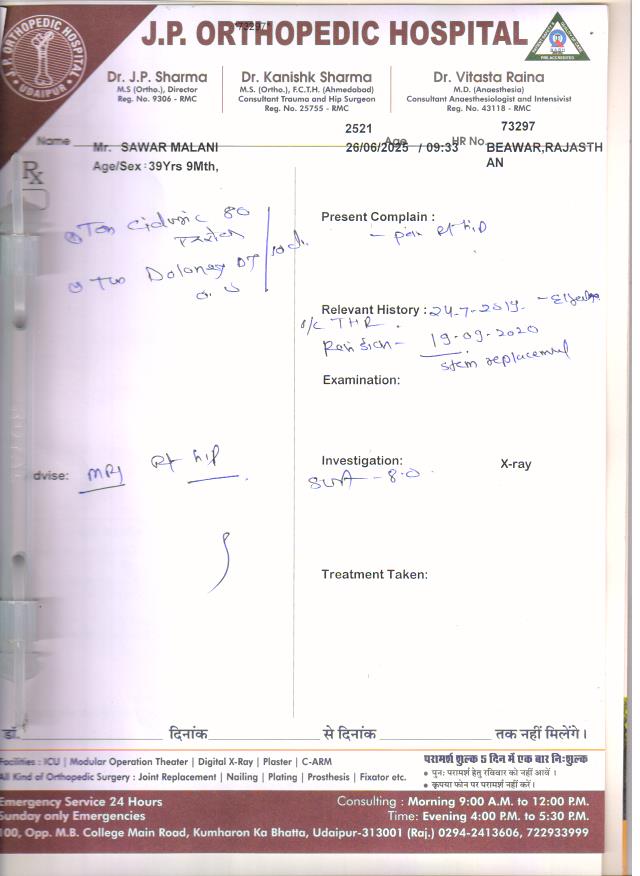 J.P. ORTHOPEDIC HOSPITAL
UDAIPUR
73297
J.P. ORTHOPEDIC HOSPITAL
Dr. J.P. Sharma
M.S (Ortho.), Director
Reg. No. 9306 - RMC
Dr. Kanishk Sharma
M.S. (Ortho.), F.C.T.H. (Ahmedabad)
Consultant Trauma and Hip Surgeon
Reg. No. 25755 - RMC
Dr. Vitasta Raina
M.D. (Anaesthesia)
Consultant Anaesthesiologist and Intensivist
Reg. No. 43118 - RMC
2521 73297
Name Age HR No.
Mr. SAWAR MALANI 26/06/2025 / 09:33 BEAWAR,RAJASTH
AN
Age/Sex : 39Yrs 9Mth,
Rx
Present Complain :
- pain Rt hip
80
Relevant History : 24-7-2019
THR
Revision - 19-09-2020
stem replacement
Examination:
dvise: MRI Rt hip
Investigation: X-ray
- 8.0
Treatment Taken:
डॉ. दिनांक से दिनांक तक नहीं मिलेंगे।
Facilities : ICU | Modular Operation Theater | Digital X-Ray | Plaster | C-ARM
All Kind of Orthopedic Surgery : Joint Replacement | Nailing | Plating | Prosthesis | Fixator etc.
परामर्श शुल्क 5 दिन में एक बार निःशुल्क
• पुनः परामर्श हेतु रविवार को नहीं आवें ।
• कृपया फोन पर परामर्श नहीं करें।
Emergency Service 24 Hours
Sunday only Emergencies
Consulting : Morning 9:00 A.M. to 12:00 P.M.
Time: Evening 4:00 P.M. to 5:30 P.M.
100, Opp. M.B. College Main Road, Kumharon Ka Bhatta, Udaipur-313001 (Raj.) 0294-2413606, 722933999